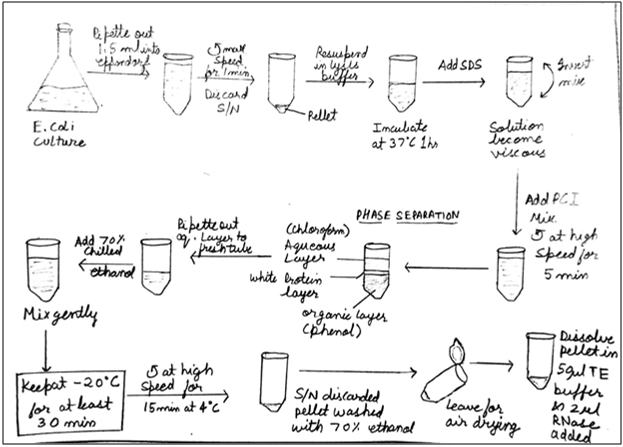 Pipette out
1.5 ml into
effendorf
E. Coli
culture
↻ max
Speed
for 1 min
Discard
S/N
Pellet
Resuspend
in lysis
buffer
Incubate
at 37°C 1hr
Add SDS
Invert
mix
Solution
become
viscous
Add PCI
Mix
↻ at high
Speed for
5 min
PHASE SEPARATION
(chloroform)
Aqueous
Layer
white Protein
layer
organic layer
(phenol)
Pipette out
aq. Layer to
fresh tube
Add 70%
Chilled
ethanol
Mix gently
Keep at -20°C
for at least
30 min
↻ at high
Speed for
15 min at 4°C
S/N discarded
pellet washed
with 70% ethanol
leave for
air drying
Dissolve
pellet in
50µl TE
buffer
2µl
RNase
added